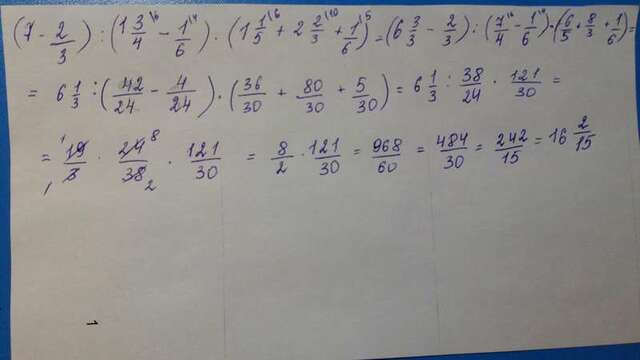 (7 - 2/3) : (1 3/4 \6 - 1/6 \4) · (1 1/5 \6 + 2 2/3 \10 + 1/6 \5) = (6 3/3 - 2/3) : (7/4 \6 - 1/6 \4) · (6/5 + 8/3 + 1/6) =
= 6 1/3 : (42/24 - 4/24) · (36/30 + 80/30 + 5/30) = 6 1/3 : 38/24 · 121/30 =
= 19/3 · 24/38 · 121/30 = 8/2 · 121/30 = 968/60 = 484/30 = 242/15 = 16 2/15